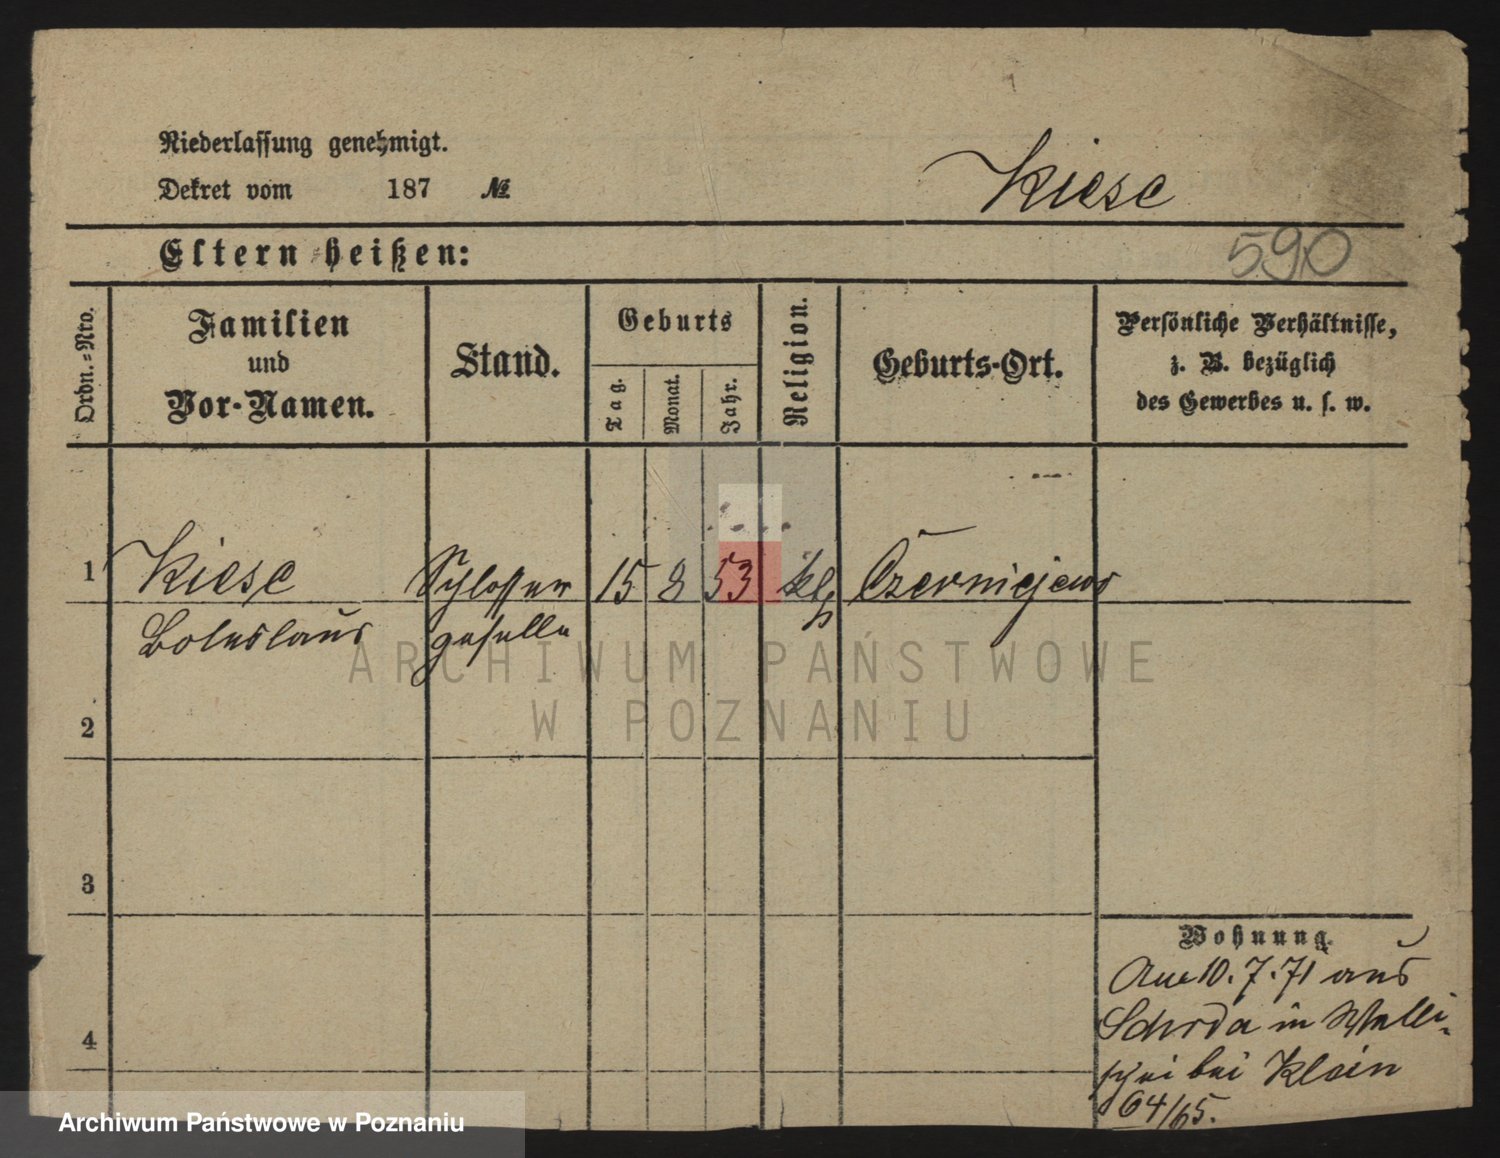 Niederlassung genehmigt.
Dekret vom 187 №
Kiese
Eltern heißen:
590
Ordn.=Nro.
Familien
und
Vor-Namen.
Stand.
Geburts
Tag.
Monat.
Jahr.
Religion.
Geburts-Ort.
Persönliche Verhältnisse,
z. B. bezüglich
des Gewerbes u. s. w.
1 Kiese Schlosser 15 8 53 klh Czerniejewo
Boleslaus geselle
2
3
4
Wohnung.
Am 10.7.71 aus
Schroda in Walli-
schei bei Klein
64/65.
ARCHIWUM PAŃSTWOWE
W POZNANIU
Archiwum Państwowe w Poznaniu